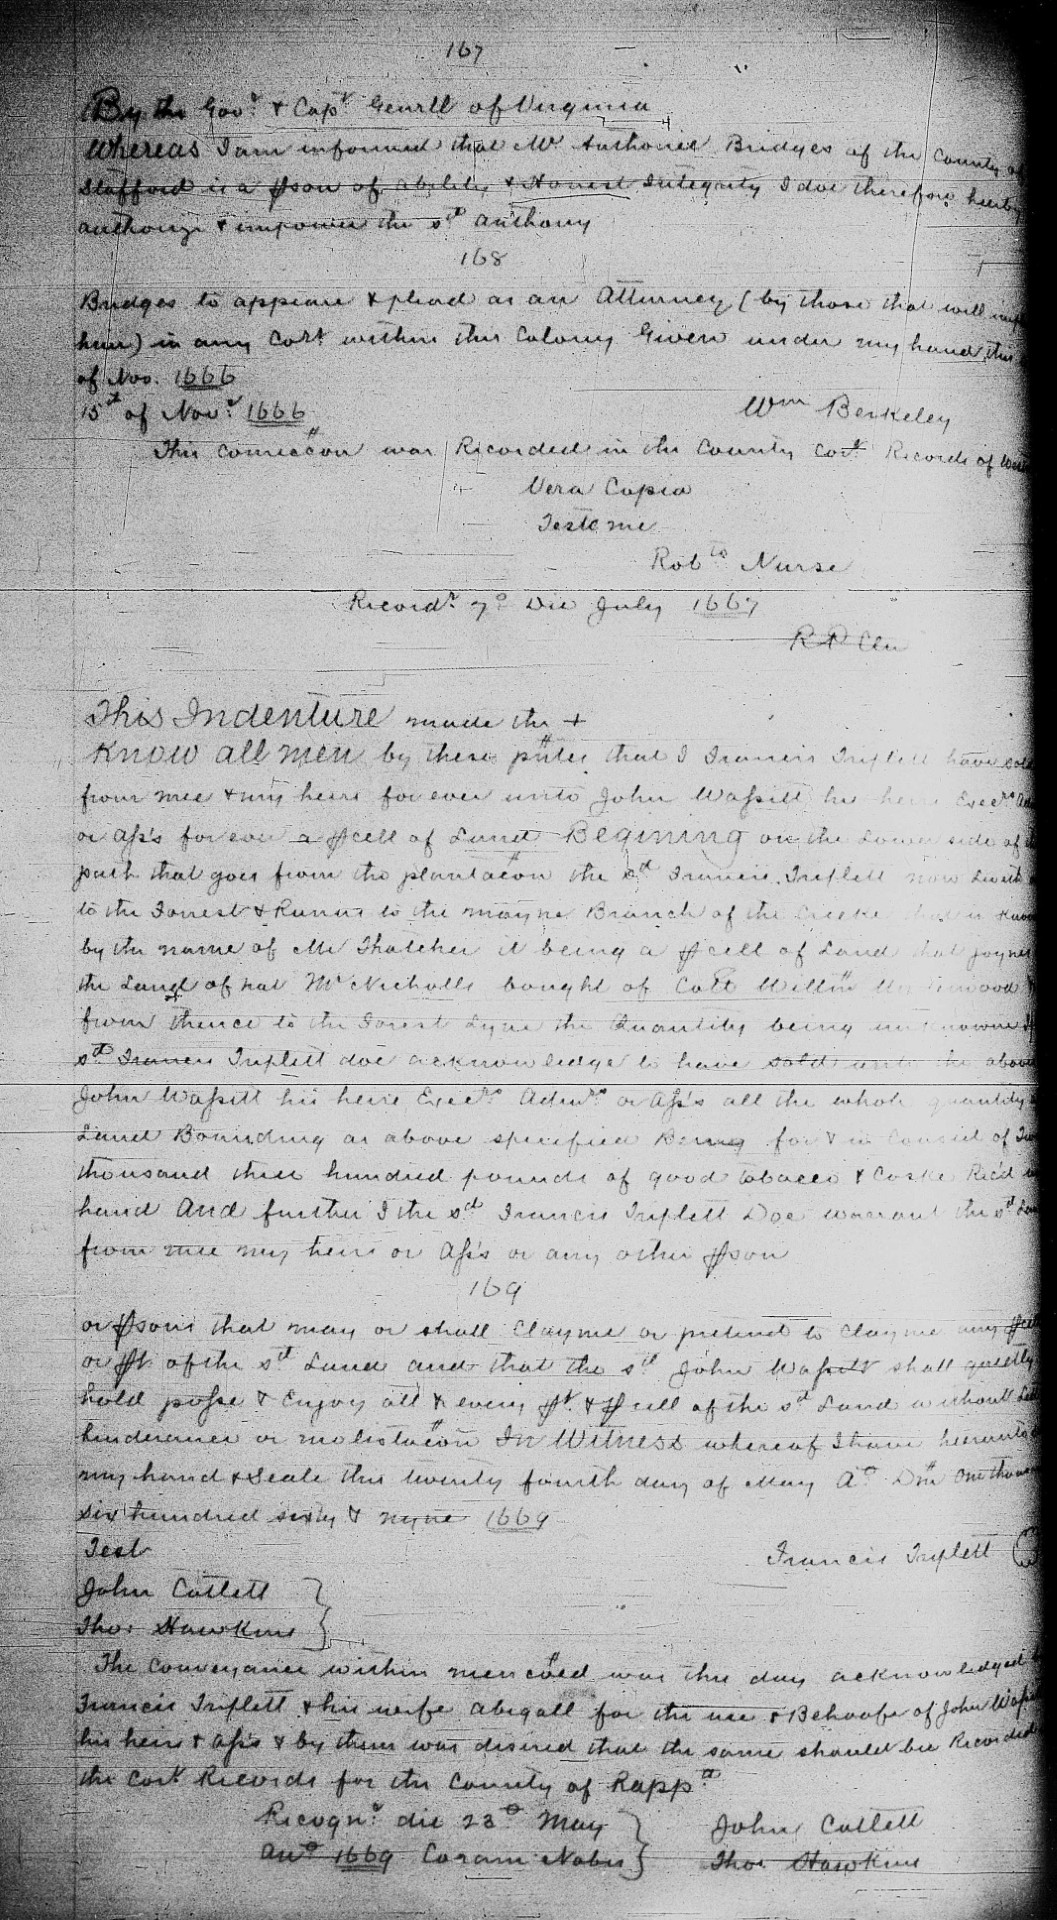 167
By the Govr & Capt Genrll of Virginia
Whereas I am informed that Mr Anthonie Bridges of the County of
Stafford is a pson of ability & Honest Integrity I doe therefore hereby
authorize & impower the sd Anthony
168
Bridges to appeare & plead as an Attorney (by those that will
him) in any Cort within this Colony Given under my hand this
of Nov. 1666
15th of Novr 1666
Wm Berkeley
This Comiccon was Recorded in the County Cort Records of
Vera Copia
Teste me
Robto Nurse
Recordr 7o Die July 1667
R P Clu
This Indenture made the +
Know all men by these pntes that I Francis Triplett have sold
from mee & my heirs for ever unto John Wassitt his heirs Execrs
or Ass for ever a pcell of Land Begining on the Lower side of
path that goes from the plantacon the sd Francis Triplett now Liveth
to the Forrest & Runns to the mayne Branch of the Creeke that is
by the name of Mr Thatcher it being a pcell of Land that joynes
the Land of nat Mr Nicholls bought of Catt Willm
from thence to the Forest Lyne the Quantity being unknowne
sd Francis Triplett doe acknowledge to have sold unto the above
John Wassitt his heirs Execrs Admrs or Ass all the whole quantity
Land Bounding as above specified Being for & in Consid of
thousand three hundred pounds of good tobacco & Caske Recd
hand And further I the sd Francis Triplett Doe warrant the sd
from mee my heirs or Ass or any other pson
169
or psons that may or shall Clayme or pretend to Clayme any
or pt of the sd Land and that the sd John Wassitt shall quietly
hold posse & Enjoy all & every pt & pcell of the sd Land without
hinderance or molistacon In Witness whereof I have hereunto
my hand & Seale this twenty fourth day of May Ao Dm one
six hundred sixty & nyne 1669
Test
Francis Triplett
John Catlett
Tho: Hawkins
The Conveyance within mencoed was this day acknowledged
Francis Triplett & his wife Abigall for the use & Behoofe of John
his heirs & Ass & by them was desired that the same should bee Recorded
the Cort Records for the County of Rappa
Recognr die 23o May
John Catlett
Ano 1669 Coram Nobis
Tho: Hawkins